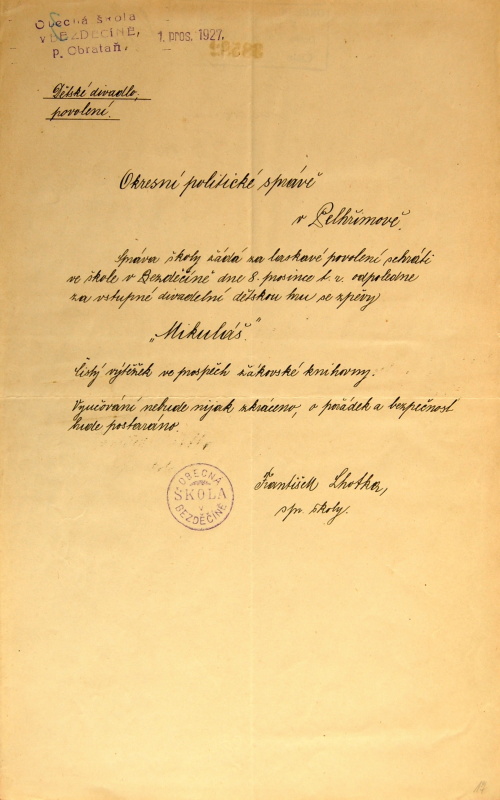 Obecná škola
v BEZDĚČÍNĚ,
p. Obrataň,
1. pros. 1927.
Dětské divadlo,
povolení.
Okresní politické správě
v Pelhřimově.
Správa školy žádá za laskavé povolení sehráti
ve škole v Bezděčíně dne 8. prosince t. r. odpoledne
za vstupné divadelní dětskou hru se zpěvy
„Mikuláš."
Čistý výtěžek ve prospěch žákovské knihovny.
Vyučování nebude nijak zkráceno, o pořádek a bezpečnost
bude postaráno.
OBECNÁ
ŠKOLA
V
BEZDĚČÍNĚ
František Lhotka,
spr. školy.